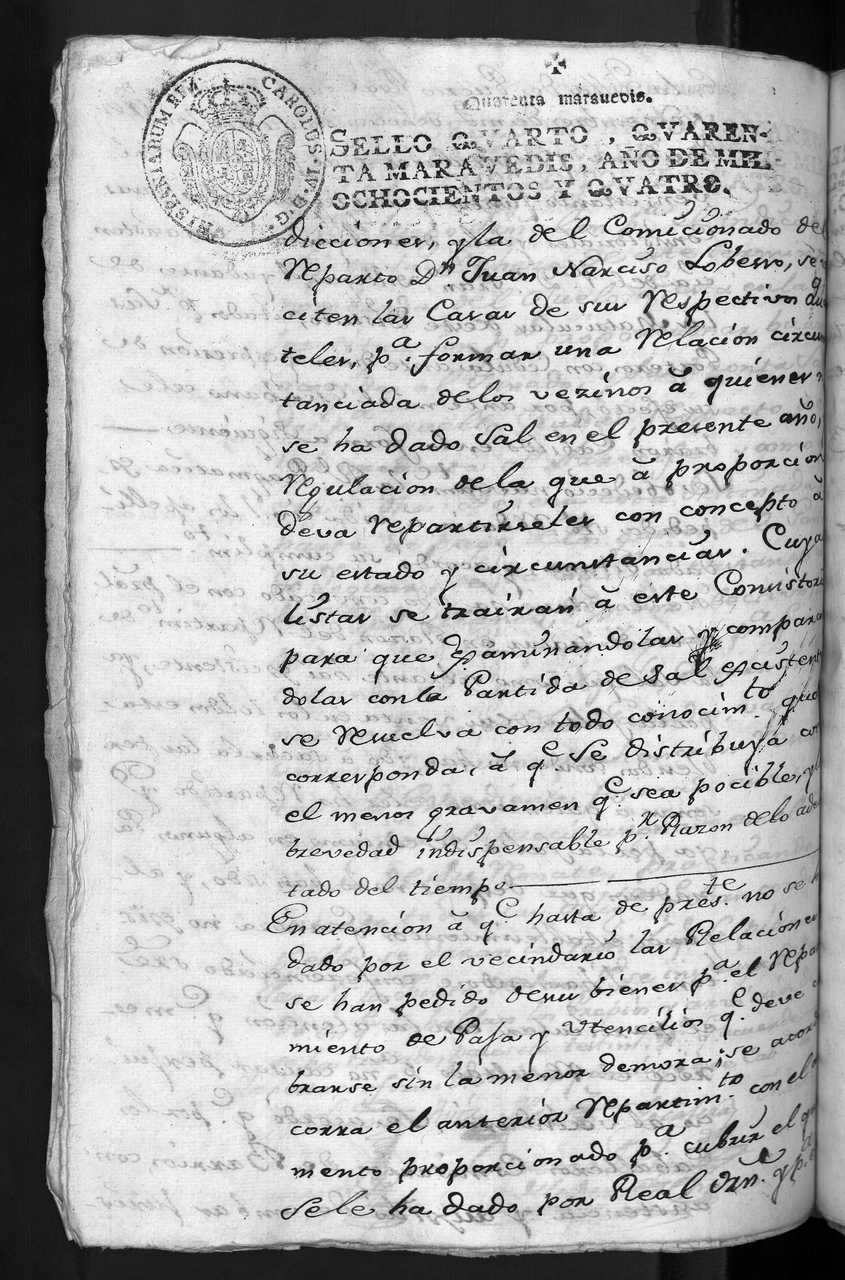 HISPANIARUM REX CAROLUS·IV·D·G·
Quarenta maravedis.
SELLO QVARTO, QVAREN-
TA MARAVEDIS, AÑO DE MIL
OCHOCIENTOS Y QVATRO.
dicciones, y la de el Comicionado de
Reparto Dn Juan Narciso Loberro, se
citen las Casas de sus Respectivos qu
teles, pa. formar una Relacion circun
tanciada de los vezinos â quienes
se ha dado Sal en el presente año,
Regulacion de la que â proporcion
deva repartirseles con concepto â
su estado y circunstancias. Cuya
listas se trairan â este Concistor
para que examinandolas y compara
dolas con la Partida de Sal existen
se Resuelva con todo conocimto. que
corresponda, â qe. se distribuya co
el menos gravamen qe. sea pocible, y
brevedad indispensable pr. Razon de lo ade
tado del tiempo.
En atencion â qe. hasta de preste. no se h
dado por el vecindario las Relaciones
se han pedido de sus bienes pa. el Repa
miento de Paja y Utencilios qe. deve
brarse sin la menor demora; se acor
corra el anterior Repartimto. con el
mento proporcionado pa. cubrir el
se le ha dado por Real Orn. y pr.